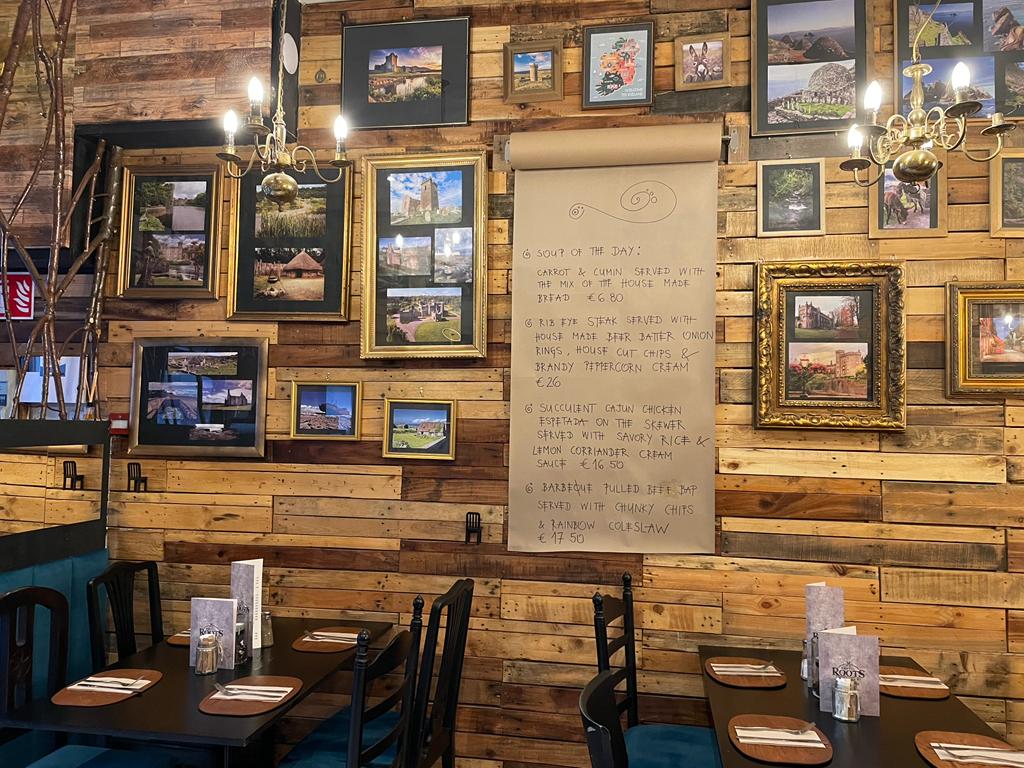 SOUP OF THE DAY:
CARROT & CUMIN SERVED WITH
THE MIX OF THE HOUSE MADE
BREAD €6.80
RIB EYE STEAK SERVED WITH
HOUSE MADE BEER BATTER ONION
RINGS, HOUSE CUT CHIPS &
BRANDY PEPPERCORN CREAM
€26
SUCCULENT CAJUN CHICKEN
ESPETADA ON THE SKEWER
SERVED WITH SAVORY RICE &
LEMON CORRIANDER CREAM
SAUCE €16.50
BARBEQUE PULLED BEEF BAP
SERVED WITH CHUNKY CHIPS
& RAINBOW COLESLAW
€17.50
ROOTS
ROOTS